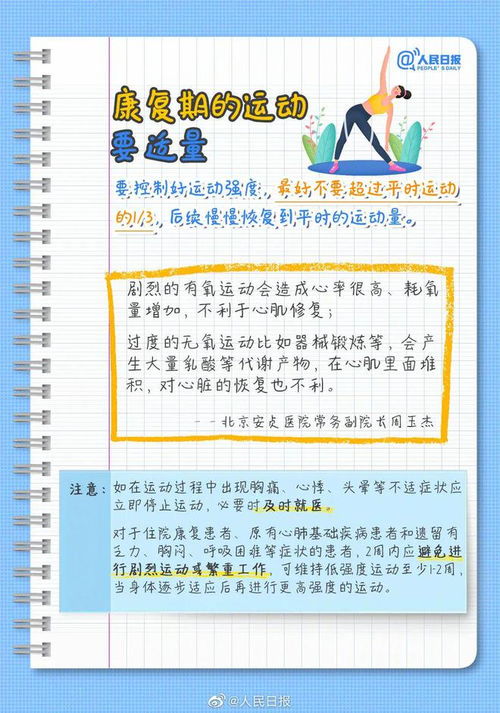 @人民日报
PEOPLE'S DAILY
康复期的运动
要适量
要控制好运动强度，最好不要超过平时运动
的1/3，后续慢慢恢复到平时的运动量。
剧烈的有氧运动会造成心率很高、耗氧
量增加，不利于心肌修复；
过度的无氧运动比如器械锻炼等，会产
生大量乳酸等代谢产物，在心肌里面堆
积，对心脏的恢复也不利。
--北京安贞医院常务副院长周玉杰
注意：如在运动过程中出现胸痛、心悸、头晕等不适症状应
立即停止运动，必要时及时就医。
对于住院康复患者、原有心肺基础疾病患者和遗留有
乏力、胸闷、呼吸困难等症状的患者，2周内应避免进
行剧烈运动或繁重工作，可维持低强度运动至少1-2周，
当身体逐步适应后再进行更高强度的运动。
@人民日报